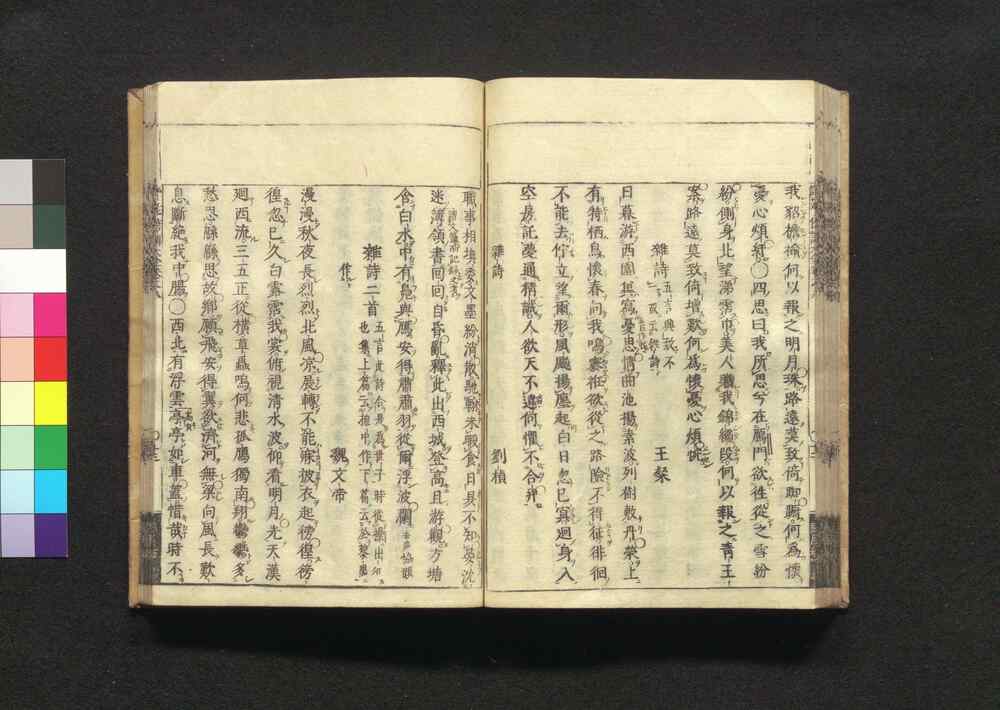 我貂襜褕何以報之明月珠路遠莫致倚踟蹰何為懷
憂心煩紆〇四思曰我所思兮在鴈門欲往從之雪紛
紛側身北望涕霑巾美人贈我錦繡段何以報之青玉
案路遠莫致倚增歎何為懷憂心煩惋
雜詩 王粲
日暮游西園冀寫憂思情曲池揚素波列樹敷丹榮上
有特栖鳥懷春向我鳴褰袵欲從之路險不得征徘徊
不能去佇立望爾形風飈揚塵起白日忽已冥迴身入
空房託夢通精誠人欲天不違何懼不合并
雜詩 劉楨
職事相填委文墨紛消散馳翰未暇食日昃不知晏沈
迷簿領書回回自昏亂釋此出西城登高且游觀方塘
含白水中有鳧與鴈安得肅肅羽從爾浮波瀾
雜詩二首 魏文帝
漫漫秋夜長烈烈北風凉展轉不能寐披衣起彷徨彷
徨忽已久白露霑我裳俯視清水波仰看明月光天漢
廻西流三五正從橫草蟲鳴何悲孤鴈獨南翔鬱鬱多
愁思緜緜思故鄉願飛安得翼欲濟河無梁向風長歎
息斷絶我中腸〇西北有浮雲亭亭如車蓋惜哉時不